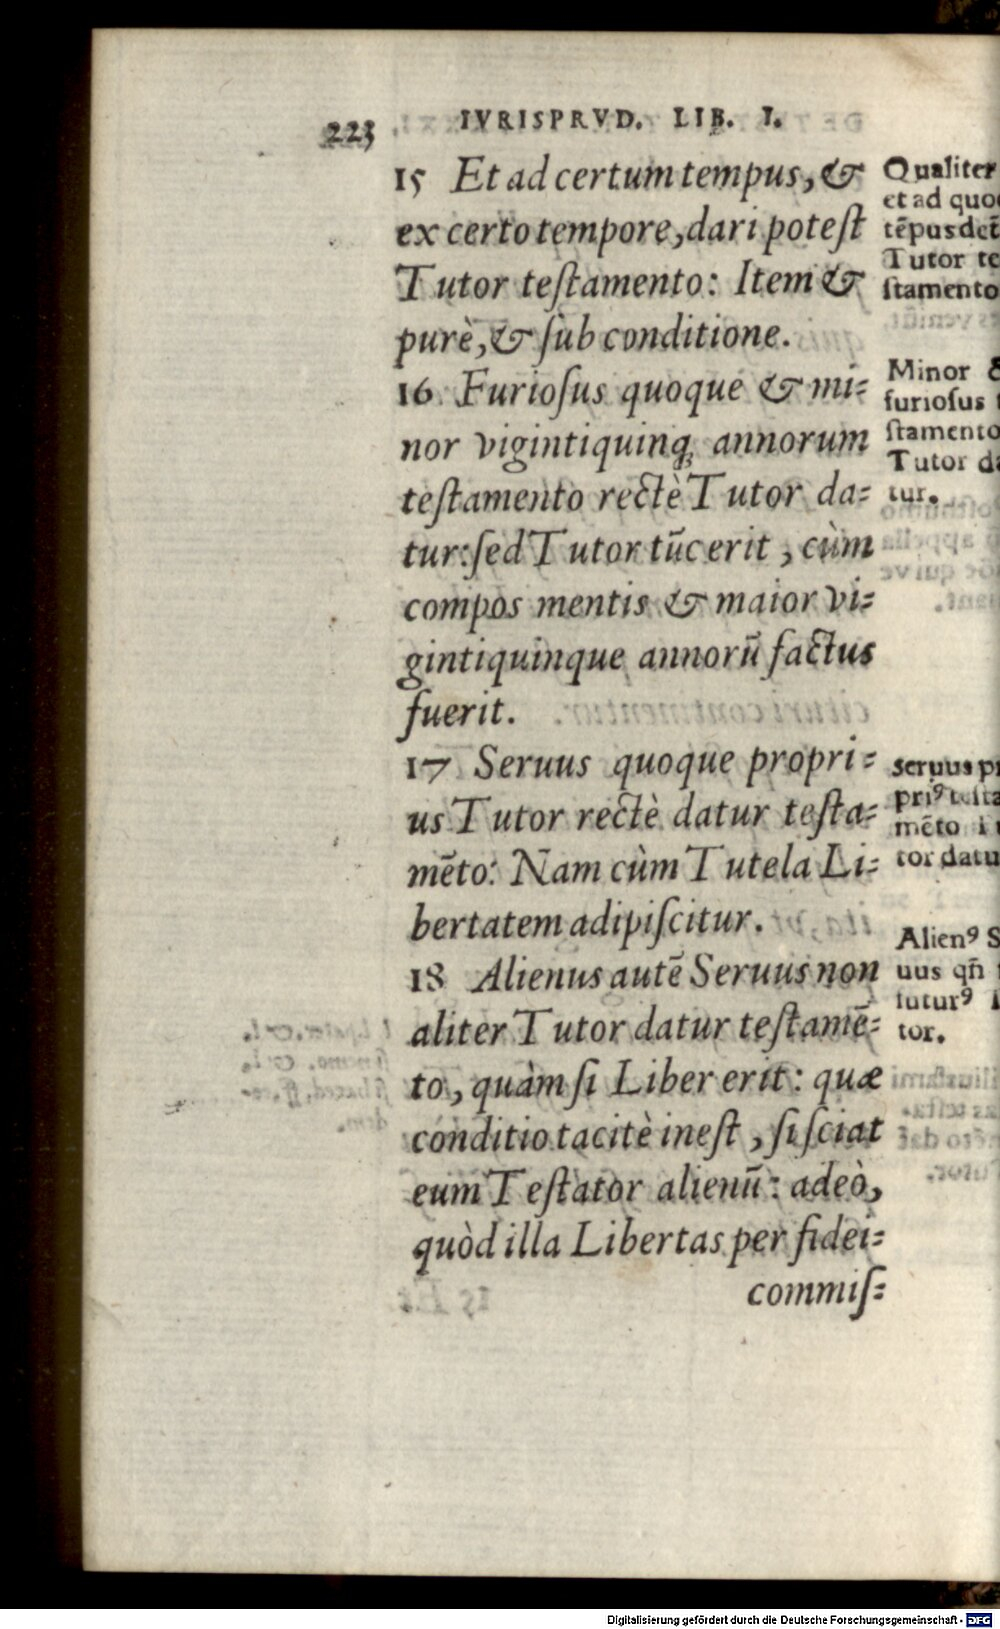 223 IVRISPRVD. LIB. I.
15 Et ad certum tempus, &
ex certo tempore, dari poteſt
Tutor teſtamento: Item &
purè, & ſub conditione.
16 Furioſus quoque & mi=
nor vigintiquinq; annorum
teſtamento rectè Tutor da=
tur: ſed Tutor tūc erit, cùm
compos mentis & maior vi=
gintiquinque annorū factus
fuerit.
17 Seruus quoque propri=
us Tutor rectè datur teſta=
mēto: Nam cùm Tutela Li=
bertatem adipiſcitur.
18 Alienus autē Seruus non
aliter Tutor datur teſtamē=
to, quàm ſi Liber erit: quæ
conditio tacitè ineſt, ſi ſciat
eum Teſtator alienū: adeò,
quòd illa Libertas per fidei=
commiſ=
Qualiter
et ad quo
tēpus det
Tutor te
ſtamento
Minor &
furioſus
ſtamento
Tutor da
tur.
Seruus
priꝰ teſta
mēto
tor datu
Alienꝰ
uus qn̄
futurꝰ
tor.
Digitalisierung gefördert durch die Deutsche Forschungsgemeinschaft - DFG